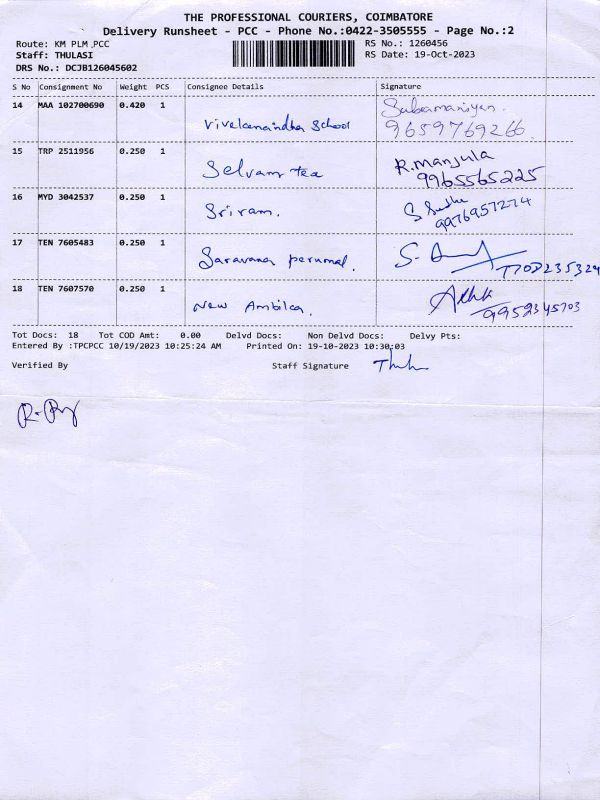 THE PROFESSIONAL COURIERS, COIMBATORE
Delivery Runsheet - PCC - Phone No.:0422-3505555 - Page No.:2
Route: KM PLM ,PCC RS No.: 1260456
Staff: THULASI RS Date: 19-Oct-2023
DRS No.: DCJB126045602
S No Consignment No Weight PCS Consignee Details Signature
14 MAA 102700690 0.420 1 Vivekanandha School Subramaniyan. 9659769266
15 TRP 2511956 0.250 1 Selvam tea R.Manjula 9965565225
16 MYD 3042537 0.250 1 Sriram. S Sudha 9976957274
17 TEN 7605483 0.250 1 Saravana perumal.
18 TEN 7607570 0.250 1 New Ambika. 9952345703
Tot Docs: 18 Tot COD Amt: 0.00 Delvd Docs: Non Delvd Docs: Delvy Pts:
Entered By :TPCPCC 10/19/2023 10:25:24 AM Printed On: 19-10-2023 10:30:03
Verified By Staff Signature